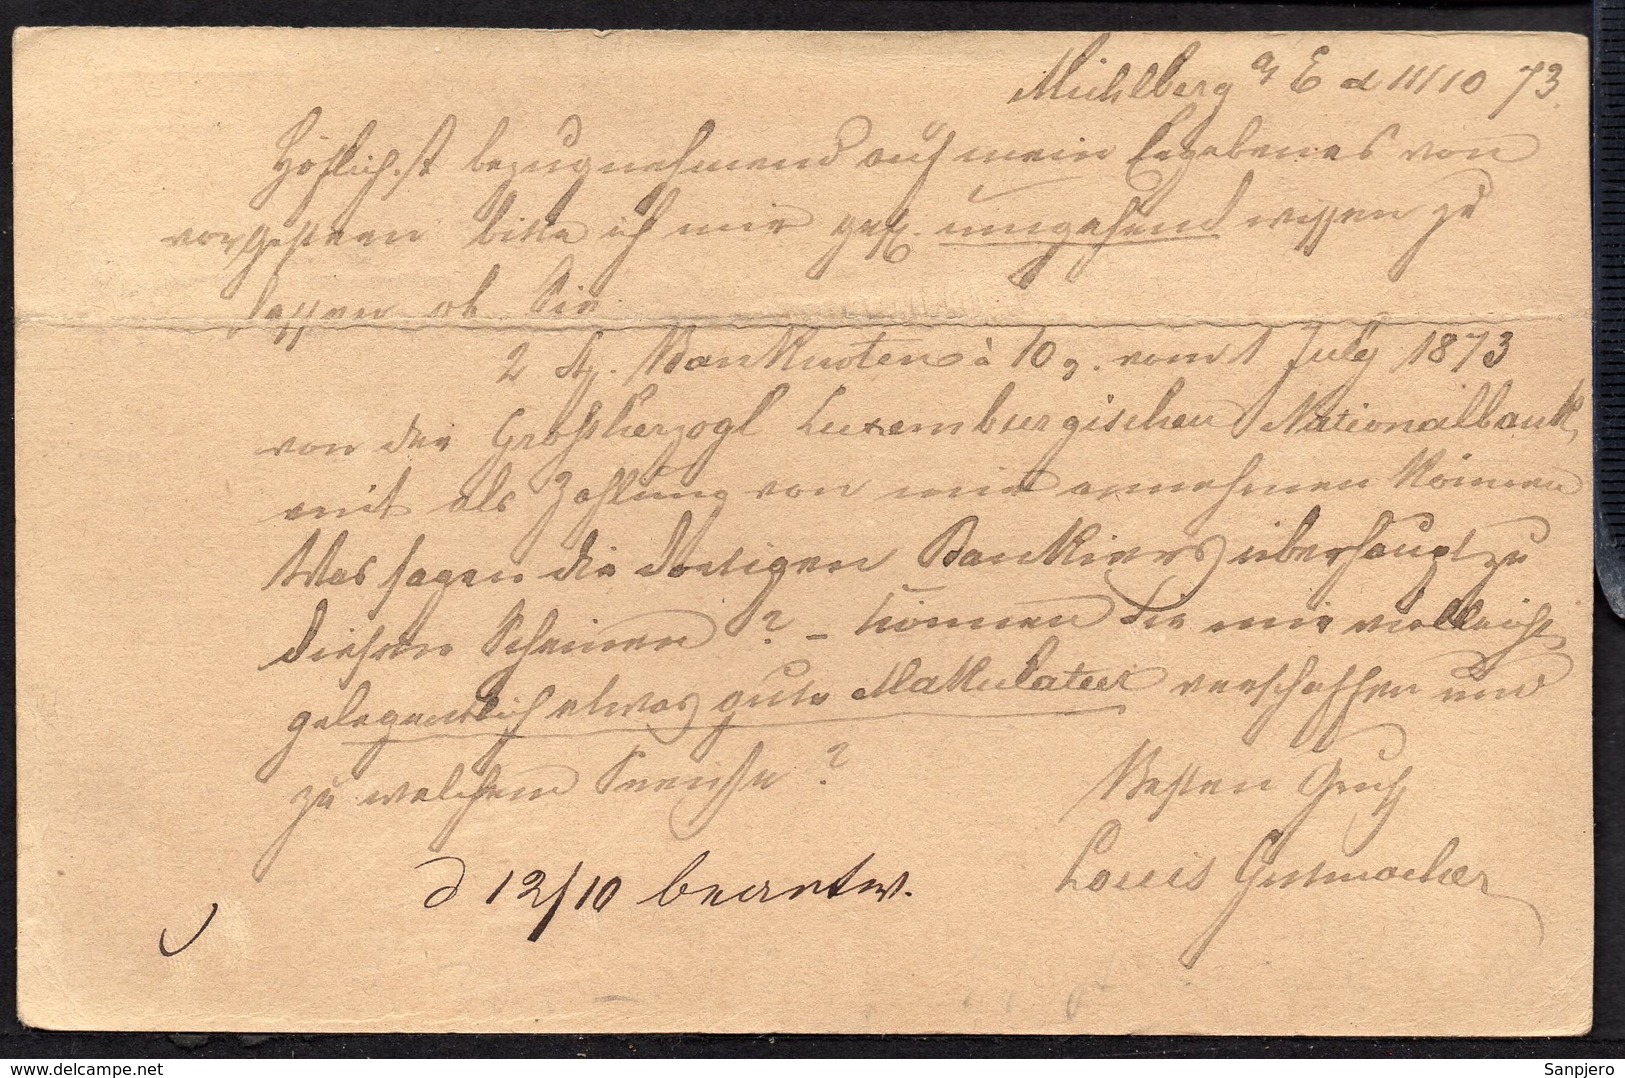 Mühlberg a/E d 11/10 73.
Höflichst bezugnehmend auf mein Ergebenes von
vorgestern bitte ich mir gefl. umgehend wissen zu
lassen ob Sie
2 St. Banknoten à 10 vom 1 July 1873
von der Großherzogl Luxemburgischen Nationalbank,
mit als Zahlung von mir annehmen können
Was sagen die dortigen Bankiers überhaupt zu
diesen Scheinen? – Können Sie mir vielleicht
gelegentlich etwas gute Makulatur verschaffen und
zu welchem Preise?
Besten Gruß
Louis Gutmacher
d 12/10 beantw.
delcampe.net
Sanpjero